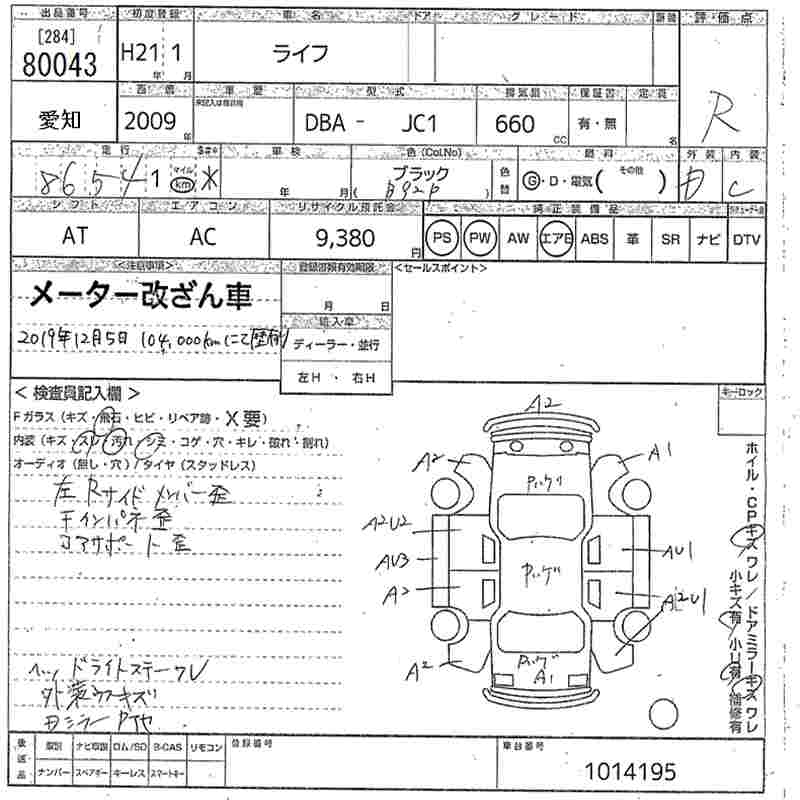 出品番号 初度登録 車名 ドア グレード 評価点
[284]
80043 H21 1 ライフ R
年 月
愛知 2009 年 DBA - JC1 660 cc 有・無 名
型式 排気量 保証書 定員
走行 車検 色(Col.No) 燃料 外装 内装
86541 マイル km * 年 月 ブラック 色替 G・D・電気( その他 ) D C
シフト エアコン リサイクル預託金 純正装備品
AT AC 9,380 円 PS PW AW エアB ABS 革 SR ナビ DTV
<注意事項> 登録書類有効期限 <セールスポイント>
メーター改ざん車 月 日
輸入車
2019年12月5日 104,000kmにて歴有り ディーラー・並行
左H ・ 右H
< 検査員記入欄 > キーロック
Fガラス(キズ・飛石・ヒビ・リペア跡・X要)
内装(キズ・スレ・汚れ・シミ・コゲ・穴・キレ・破れ・割れ)
オーディオ(無し・穴)/タイヤ(スタッドレス)
左Rサイドメンバー歪
コアサポート歪
A2
A2 A1
A2U2
AU3 AU1
A2 A2U1
A2 A1
ホイル・CPキズワレ/ドアミラーキズワレ
小キズ有/小U有/補修有
ヘッドライトステーワレ
後送品 取説 ナビ取説 ロム/SD B-CAS リモコン 登録番号 車台番号
ナンバー スペアキー キーレス スマートキー 1014195